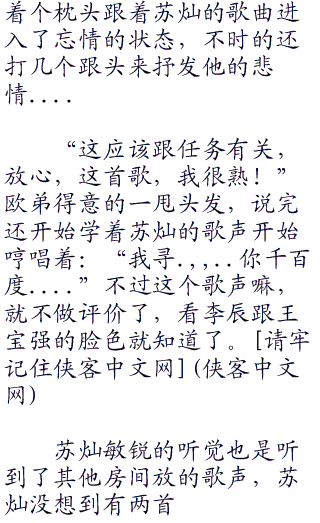 着个枕头跟着苏灿的歌曲进
入了忘情的状态，不时的还
打几个跟头来抒发他的悲
情....
“这应该跟任务有关，
放心，这首歌，我很熟！”
欧弟得意的一甩头发，说完
还开始学着苏灿的歌声开始
哼唱着：“我寻.,,..你千百
度....”不过这个歌声嘛，
就不做评价了，看李辰跟王
宝强的脸色就知道了。[请牢
记住侠客中文网](侠客中文
网)
苏灿敏锐的听觉也是听
到了其他房间放的歌声，苏
灿没想到有两首